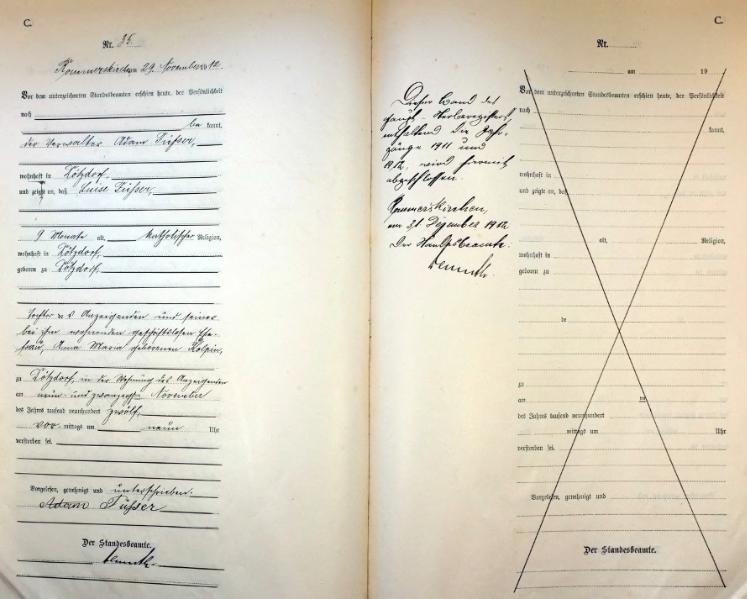 C.
Nr. 35.
Rommerskirchen am 29. November 1912.
Vor dem unterzeichneten Standesbeamten erschien heute, der Persönlichkeit
nach
be kannt,
der Verwalter Adam Füsser,
wohnhaft in
und zeigte an, daß Luise Füsser,
9 Monate alt, katholischer Religion,
wohnhaft in
geboren zu
Tochter des Anzeigenden und seiner
bei ihm wohnenden geschäftslosen Ehe-
frau, Anna Maria geborenen
zu in der Wohnung des Anzeigenden
am neun und zwanzigsten November
des Jahres tausend neunhundert zwölf,
vor mittags um neun Uhr
verstorben sei.
Vorgelesen, genehmigt und unterschrieben.
Adam Füsser
Der Standesbeamte.
C.
Nr.
am 19
Vor dem unterzeichneten Standesbeamten erschien heute, der Persönlichkeit
nach
kannt,
wohnhaft in
und zeigte an, daß
alt, Religion,
wohnhaft in
geboren zu
de
zu
am te
des Jahres tausend neunhundert
mittags um Uhr
verstorben sei.
Vorgelesen, genehmigt und
Der Standesbeamte.
Dieser Band des
enthaltend die
gänge 1911 und
1912, wird hiermit
abgeschlossen.
Rommerskirchen,
am 31. Dezember 1912
Der Standesbeamte.